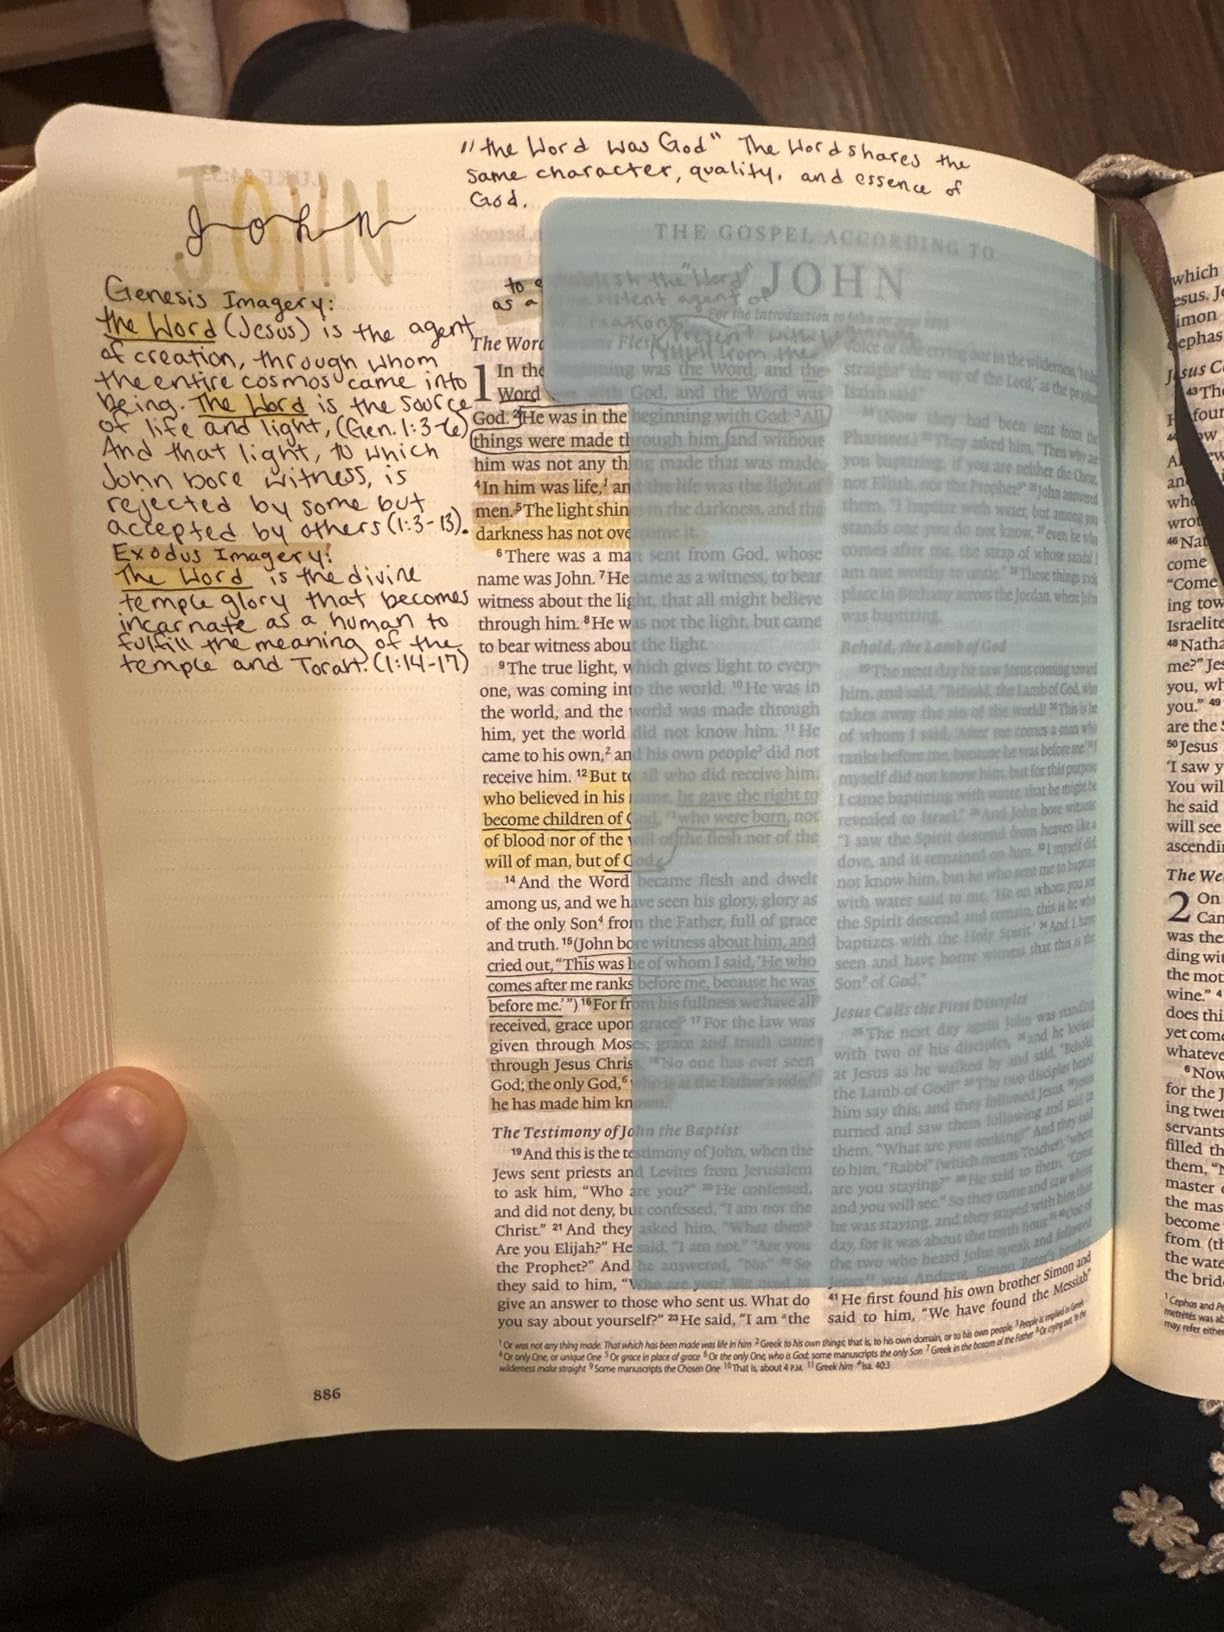 "the Word was God" The Word shares the
same character, quality, and essence of
God.
JOHN
John
Genesis Imagery:
the Word (Jesus) is the agent
of creation, through whom
the entire cosmos came into
being. The Word is the source
of life and light, (Gen. 1:3-6)
And that light, to which
John bore witness, is
rejected by some but
accepted by others (1:3-13).
Exodus Imagery:
The Word is the divine
temple glory that becomes
incarnate as a human to
fulfill the meaning of the
temple and Torah. (1:14-17)
THE GOSPEL ACCORDING TO
JOHN
to
as a
The Word Flesh
1 In the beginning was the Word, and the
Word with God, and the Word was
God. 2 He was in the beginning with God. 3 All
things were made through him, and without
him was not any thing made that was made.
4 In him was life,1 and the life was the light of
men. 5 The light shines in the darkness, and the
darkness has not overcome it.
6 There was a man sent from God, whose
name was John. 7 He came as a witness, to bear
witness about the light, that all might believe
through him. 8 He was not the light, but came
to bear witness about the light.
9 The true light, which gives light to every-
one, was coming into the world. 10 He was in
the world, and the world was made through
him, yet the world did not know him. 11 He
came to his own,2 and his own people3 did not
receive him. 12 But to all who did receive him,
who believed in his name, he gave the right to
become children of God, 13 who were born, not
of blood nor of the will of the flesh nor of the
will of man, but of God.
14 And the Word became flesh and dwelt
among us, and we have seen his glory, glory as
of the only Son4 from the Father, full of grace
and truth. 15 (John bore witness about him, and
cried out, "This was he of whom I said, 'He who
comes after me ranks before me, because he was
before me.'") 16 For from his fullness we have all
received, grace upon grace.5 17 For the law was
given through Moses; grace and truth came
through Jesus Christ. 18 No one has ever seen
God; the only God,6 who is at the Father's side,7
he has made him known.
The Testimony of John the Baptist
19 And this is the testimony of John, when the
Jews sent priests and Levites from Jerusalem
to ask him, "Who are you?" 20 He confessed,
and did not deny, but confessed, "I am not the
Christ." 21 And they asked him, "What then?
Are you Elijah?" He said, "I am not." "Are you
the Prophet?" And he answered, "No." 22 So
they said to him, "Who are you? We need to
give an answer to those who sent us. What do
you say about yourself?" 23 He said, "I am a the
voice of one crying out in the wilderness, 'Make
straight8 the way of the Lord,' as the prophet
Isaiah said."
24 (Now they had been sent from the
Pharisees.) 25 They asked him, "Then why are
you baptizing, if you are neither the Christ,
nor Elijah, nor the Prophet?" 26 John answered
them, "I baptize with water, but among you
stands one you do not know, 27 even he who
comes after me, the strap of whose sandal I
am not worthy to untie." 28 These things took
place in Bethany across the Jordan, where John
was baptizing.
Behold, the Lamb of God
29 The next day he saw Jesus coming toward
him, and said, "Behold, the Lamb of God, who
takes away the sin of the world! 30 This is he
of whom I said, 'After me comes a man who
ranks before me, because he was before me.' 31 I
myself did not know him, but for this purpose
I came baptizing with water, that he might be
revealed to Israel." 32 And John bore witness:
"I saw the Spirit descend from heaven like a
dove, and it remained on him. 33 I myself did
not know him, but he who sent me to baptize
with water said to me, 'He on whom you see
the Spirit descend and remain, this is he who
baptizes with the Holy Spirit.' 34 And I have
seen and have borne witness that this is the
Son9 of God."
Jesus Calls the First Disciples
35 The next day again John was standing
with two of his disciples, 36 and he looked
at Jesus as he walked by and said, "Behold,
the Lamb of God!" 37 The two disciples heard
him say this, and they followed Jesus. 38 Jesus
turned and saw them following and said to
them, "What are you seeking?" And they said
to him, "Rabbi" (which means Teacher), "where
are you staying?" 39 He said to them, "Come
and you will see." So they came and saw where
he was staying, and they stayed with him that
day, for it was about the tenth hour.10 40 One of
the two who heard John speak and followed
Jesus11 was Andrew, Simon Peter's brother.
41 He first found his own brother Simon and
said to him, "We have found the Messiah"
1 Or was not any thing made. That which has been made was life in him 2 Greek to his own things; that is, to his own domain, or to his own people 3 People is implied in Greek
4 Or only One, or unique One 5 Or grace in place of grace 6 Or the only One, who is God; some manuscripts the only Son 7 Greek in the bosom of the Father 8 Or crying out, In the
wilderness make straight 9 Some manuscripts the Chosen One 10 That is, about 4 P.M. 11 Greek him a Isa. 40:3
886
which
esus. Je
imon
ephas
Jesus C
43 The
four
ow
A
an
who
wrot
46 Nat
come
"Come
ing tow
Israelite
48 Natha
me?" Jes
you, wh
you." 49
are the S
50 Jesus
'I saw y
You wil
he said
will see
ascendin
The We
2 On
Can
was the
ding wit
the mot
wine." 4
does thi
yet com
whateve
6 Now
for the J
ing twen
servants
filled th
them, "N
master o
the mas
become
from (th
the wate
the brid
1 Cephas and Pe
metrētēs was ab
may refer eithe